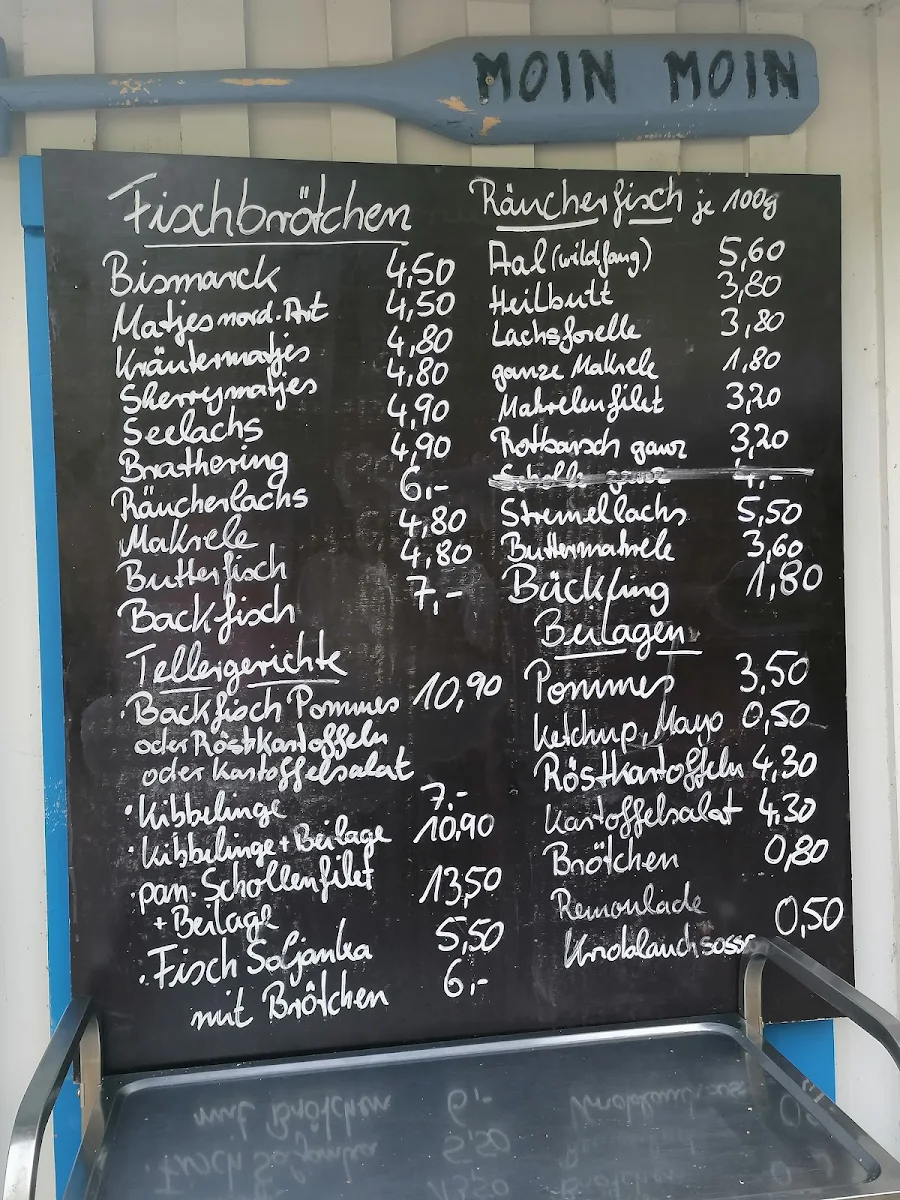 MOIN MOIN
Fischbrötchen
Bismarck 4,50
Matjes nord. Art 4,50
Kräutermatjes 4,80
Sherrymatjes 4,80
Seelachs 4,90
Brathering 4,90
Räucherlachs 6,-
Makrele 4,80
Butterfisch 4,80
Backfisch 7,-
Tellergerichte
·Backfisch Pommes 10,90
oder Röstkartoffeln
oder Kartoffelsalat
·Kibbelinge 7,-
·Kibbelinge + Beilage 10,90
·pan. Schollenfilet 13,50
+ Beilage
·Fisch Soljanka 5,50
mit Brötchen 6,-
Räucherfisch je 100g
Aal (wildfang) 5,60
Heilbutt 3,80
Lachsforelle 3,80
ganze Makrele 1,80
Makrelenfilet 3,20
Rotbarsch ganz 3,20
Scholle ganz 4,-
Stremellachs 5,50
Buttermakrele 3,60
Bückling 1,80
Beilagen
Pommes 3,50
Ketchup, Mayo 0,50
Röstkartoffeln 4,30
Kartoffelsalat 4,30
Brötchen 0,80
Remoulade 0,50
Knoblauchsosse